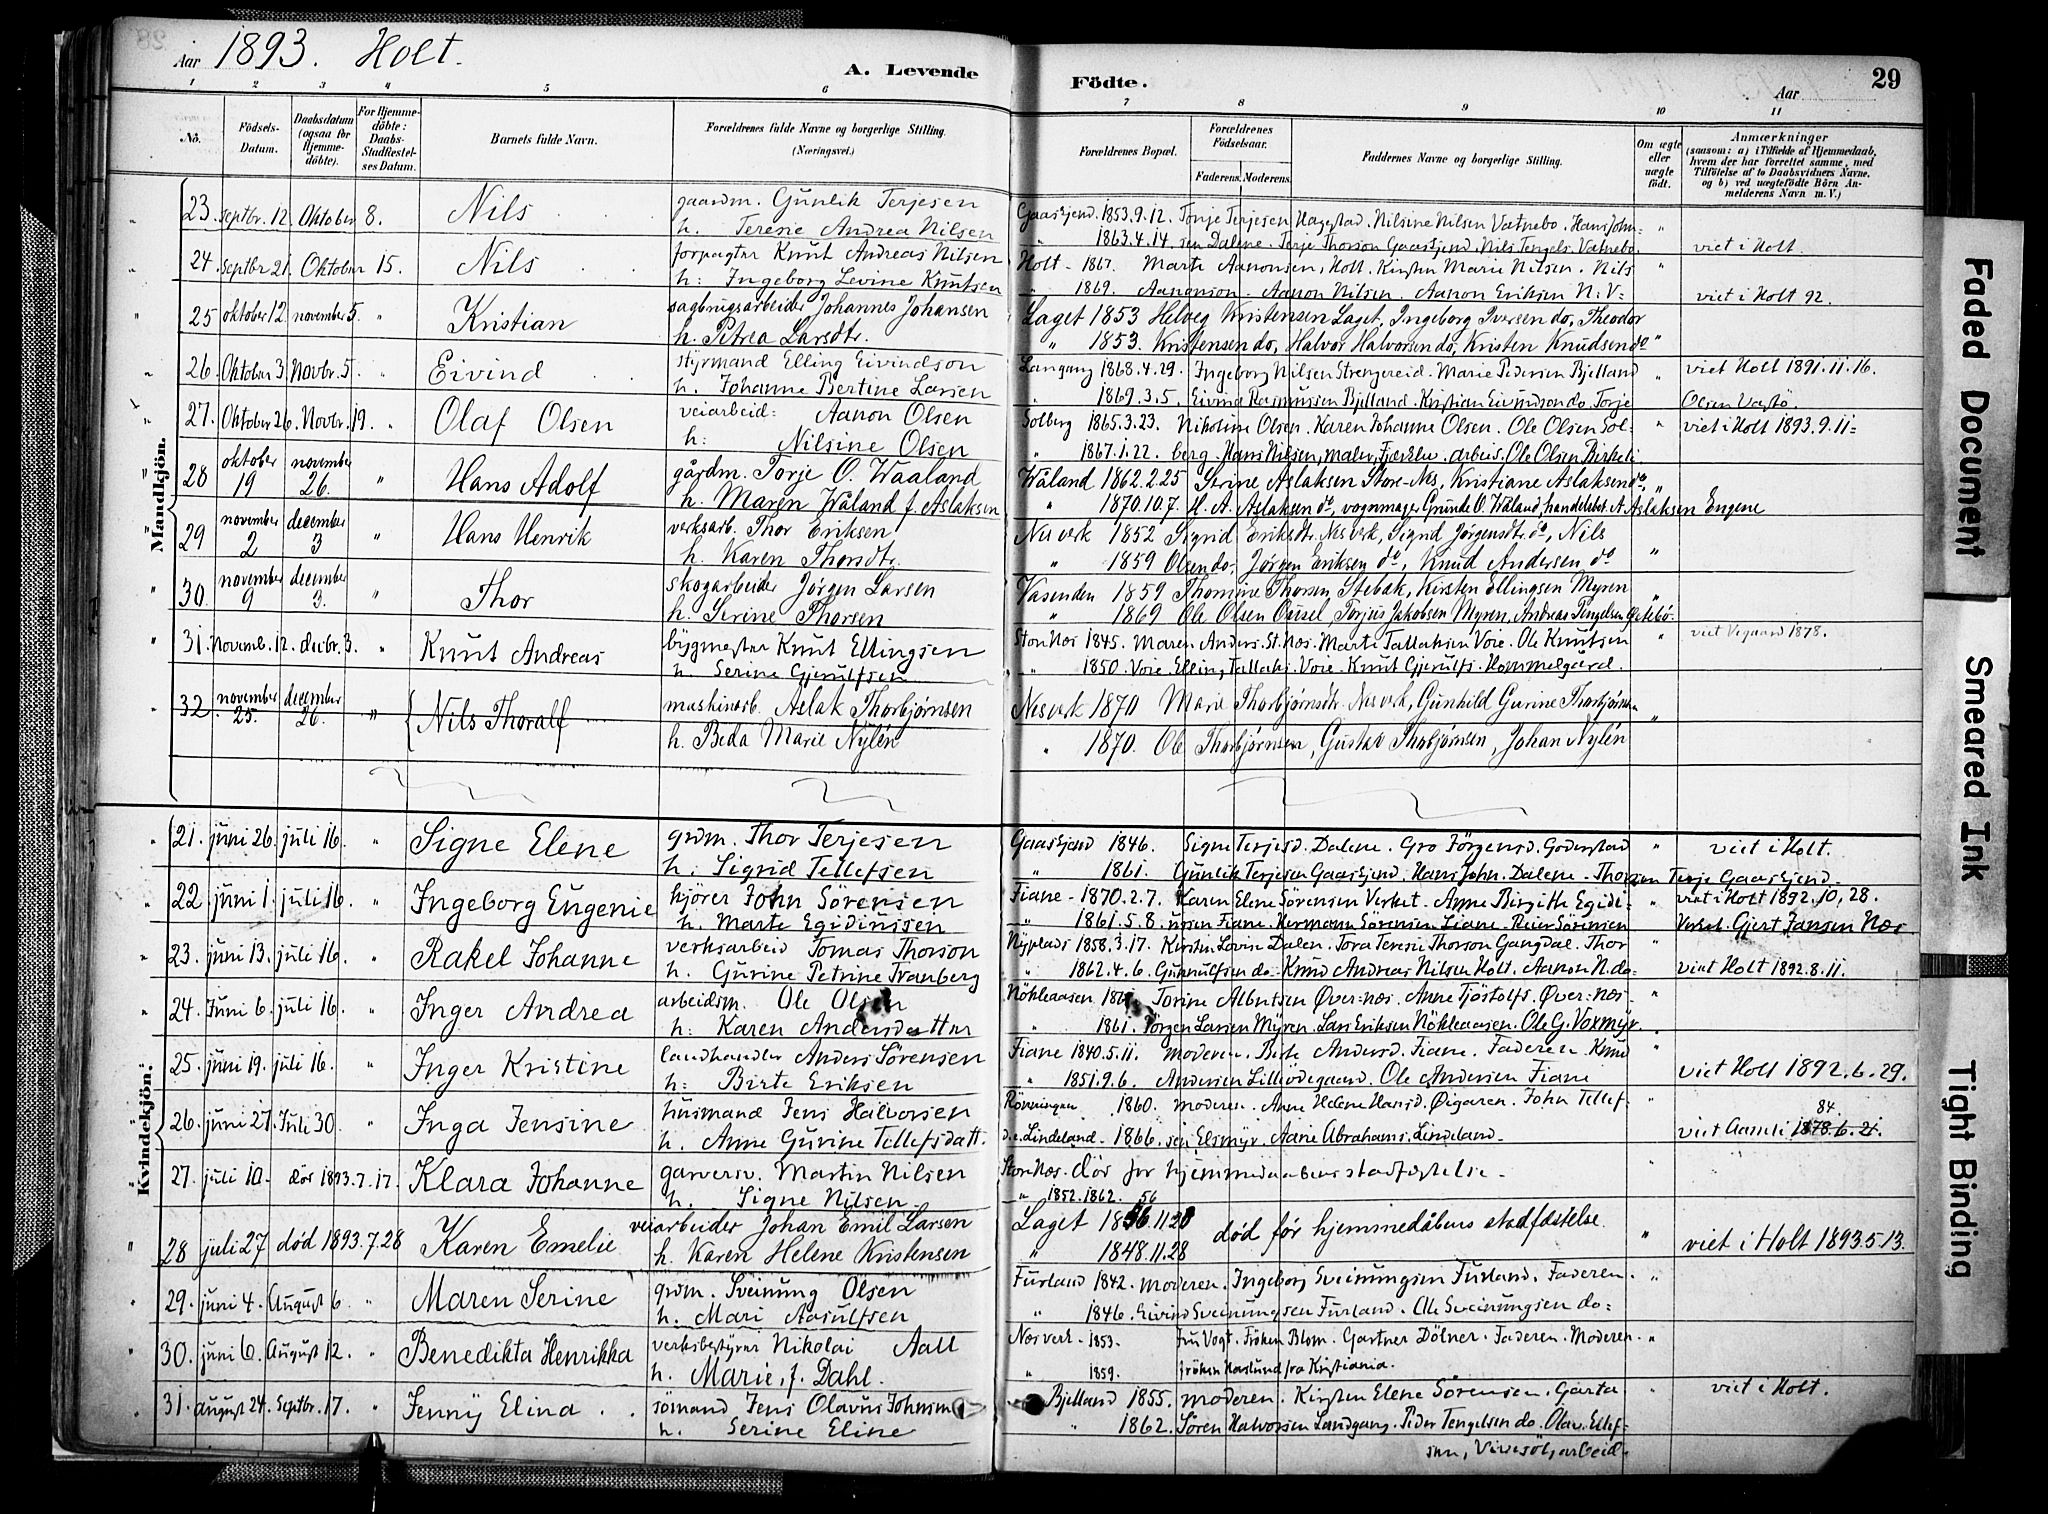 Aar 1893. Holt.
A. Levende Födte.
29
Aar
1 2 3 4 5 6 7 8 9 10 11
No.
Födsels-Datum.
Daabsdatum (ogsaa for Hjemmedöbte).
For Hjemmedöbte: Daabs-Stadfæstelses Datum.
Barnets fulde Navn.
Forældrenes fulde Navne og borgerlige Stilling. (Næringsvei.)
Forældrenes Bopæl.
Forældrenes Födselsaar.
Faderens. Moderens.
Faddernes Navne og borgerlige Stilling.
Om ægte eller uægte födt.
Anmærkninger (saasom: a) i Tilfælde af Hjemmedaab, hvem der har forrettet samme, med Tilföielse af to Daabsvidners Navne, og b) ved uægtefödte Börn Anmelderens Navn m. V.)
Mandkjön.
23. septbr. 12. Oktober 8. Nils gaardm. Gunlik Terjesen Gaaskjend. 1853.9.12. Tonje Terjesen Hagestad. Nilsine Nilsen Vatnebo. Hans John- "
h. Terese Andrea Nilsen " 1863.4.14. sen Dalene. Terje Thorson Gaaskjend, Nils Tengels. Vatnebo. viet i Holt.
24. septbr 21. Oktober 15. Nils forpagter Knut Andreas Nilsen Holt - 1867. Marte Aanonsen, Holt. Kirsten Marie Nilsen. Nils "
h: Ingeborg Levine Knutsen " 1869. Aanonson. Aanon Nilsen. Aanon Eriksen N: V: viet i Holt 92.
25 oktober 12. november 5. " Kristian sagbrugsarbeider Johannes Johansen Laget 1853 Helveg Kristensen Laget, Ingeborg Iversen do, Theodor
h. Petrea Larsdtr. " 1853. Kristensen do, Halvor Halvorsen do, Kristen Knudsen do "
26. Oktober 3. Novbr. 5. " Eivind styrmand Elling Eivindson Langang 1868.4.29. Ingeborg Nilsen Strengereid. Marie Pedersen Bjelland " viet Holt 1891.11.16.
h. Johanne Bertine Larsen " 1869.3.5. Eivind Rasmussen Bjelland. Kristian Eivindson do. Torje Olsen Vastö.
27. Oktober 26. Novbr. 19. " Olaf Olsen veiarbeid: Aanon Olsen Solberg 1865.3.23. Nikoline Olsen. Karen Johanne Olsen. Ole Olsen Sol- " viet i Holt 1893.9.11=
h: Nilsine Olsen " 1867.1.22. berg. Hans Nilsen, maler, . arbeid. Ole Olsen Birkeli
28 oktober 19 november 26. " Hans Adolf gårdm. Torje O. Waaland Wåland 1862.2.25 Serine Aslaksen Store-Nes, Kristiane Aslaksen do, "
h. Maren Wåland f. Aslaksen " 1870.10.7. H. A. Aslaksen do, vognmager Grunde O. Wåland, handelsbet. A Aslaksen Engene
29 november 2 december 3 " Hans Henrik verksarb. Thor Eriksen Nesverk 1852 Sigrid Eriksdtr. Nesverk, Sigrid Jörgensdtr. do, Nils
h. Karen Thorsdtr. " 1859 Olsen do, Jörgen Eriksen do, Knud Andersen do "
30. november 9 december 3. " Thor skogarbeider Jörgen Larsen Vasenden 1859 Thomine Thorsen Stebak, Kirsten Ellingsen Myren "
h. Serine Thorsen " 1869 Ole Olsen Ousel, Torjus Jakobsen Myren, Andreas Tengelsen
31. Novemb. 12. decbr. 3. " Knut Andreas bygmester Knut Ellingsen Store Næs 1845. Maren Anders. St. Næs. Marte Tallaksen Voie. Ole Knutsen " viet Vegaard 1878.
h. Serine Gjerulfsen " 1850. Voie. Elling Tallaks. Voie. Knut Gjerulfs. Hommelgaard.
32 november 25. december 26. " Nils Thoralf maskinarb. Aslak Thorbjørnsen Nesverk 1870 Marie Thorbjørnsdtr. Nesverk, Gunhild Gurine Thorbjørns "
h. Beda Marie Nylén " 1870. Ole Thorbjørnsen, Gustav Thorbjørnsen, Johan Nylén
Kvindekjön.
21. juni 26. juli 16. " Signe Elene grdm. Thor Terjesen Gaaskjend 1846. Signe Terjesd. Dalene. Gro Jörgensd. Goderstad " viet i Holt.
h. Sigrid Tellefsen " 1861. Gunlik Terjesen Gaaskjend. Hans John. Dalene. Thorsen Terje Gaaskjend.
22. juni 1. juli 16. " Ingeborg Eugenie kjörer John Sörensen Fiane - 1870.2.7. Karen Elene Sörensen Verket. Anne Birgitte Egidi- " viet i Holt 1892.10.28.
h. Marte Egidiussen " 1861.5.8. ussen Fiane. Hermann Sörensen Fiane. Reier Sörensen Verket. Gjert Jansen Næs
23. juni 13. juli 16. " Rakel Johanne verksarbeid Tomas Thorson Nyplads 1858.3.17. Kirsten Lovise Dalen. Tora Terese Thorson Gangdal. Thor "
h. Gurine Petrine Tranberg " 1862.4.6. Gunnulfsen do. Knud Andreas Nilsen Holt. Aanon N. do. viet Holt 1892.8.11.
24. Juni 6. juli 16. " Inger Andrea arbeidsm. Ole Olsen Nökleaasen Torine Albertsen Øver-næs. Anne Tjöstolfs. Øver-næs- "
h: Karen Andersdatter " 1861. Jörgen Larsen Myren. Lars Eriksen Nökleaasen. Ole G. Voxmyr.
25. juni 19. juli 16. " Inger Kristine landhandler Anders Sörensen Fiane 1840.5.11. moderen. Birte Andersd. Fiane. Faderen. Knud "
h: Birte Eriksen " 1851.9.6. Andersen Lilleödegaard. Ole Andersen Fiane viet Holt 1892.6.29.
26. juni 27. Juli 30. " Inga Jensine husmand Jens Halvorsen Rönningen 1860. moderen. Anne Helene Hansd. Øigaren. John Tellef- " 84.
h. Anne Gurine Tellefsdatt. u. Lindeland - 1866. sen Elsmyr. Aanie Abrahams. Lindeland. viet Aamli 1878.6.21.
27. juli 10. dör 1893.7.17. Klara Johanne garversv. Martin Nilsen Store Næs. dör for hjemmedaabens stadfæstelse. "
h. Signe Nilsen " 1852. 1862. 56
28 juli 27 död 1893.7.28 Karen Emelie veiarbeider Johan Emil Larsen Laget 1856.11.28 död før hjemmedåbens stadfæstelse.
h. Karen Helene Kristensen " 1848.11.28 " viet i Holt 1893.5.13.
29. juni 4. August 6. " Maren Serine grdm. Sveinung Olsen Furland 1842. moderen. Ingeborg Sveinungsen Furland. Faderen. "
h. Mari Aasulfsen " 1846. Eivind Sveinungsen Furland. Ole Sveinungsen do=
30. juni 6. August 12. " Benedikta Henrikka verksbestyrer Nikolai Aall Næs verk - 1853. Fru Vogt. Fröken Blom. Gartner Dölner. Faderen. Moderen. "
h. Marie, f. Dahl. " 1859. Fröken Haslund fra Kristiania.
31. august 24. Septbr. 17. " Jenny Elina sömand Jens Olavus Johnsen Bjelland 1855. moderen. Kirsten Elene Sörensen. Garta " viet i Holt.
h. Serine Eline " 1862. Sören Halvorsen Landgang. Peder Tengelsen do. Olav. Ellef-
sen,
Faded Document
Smeared Ink
Tight Binding